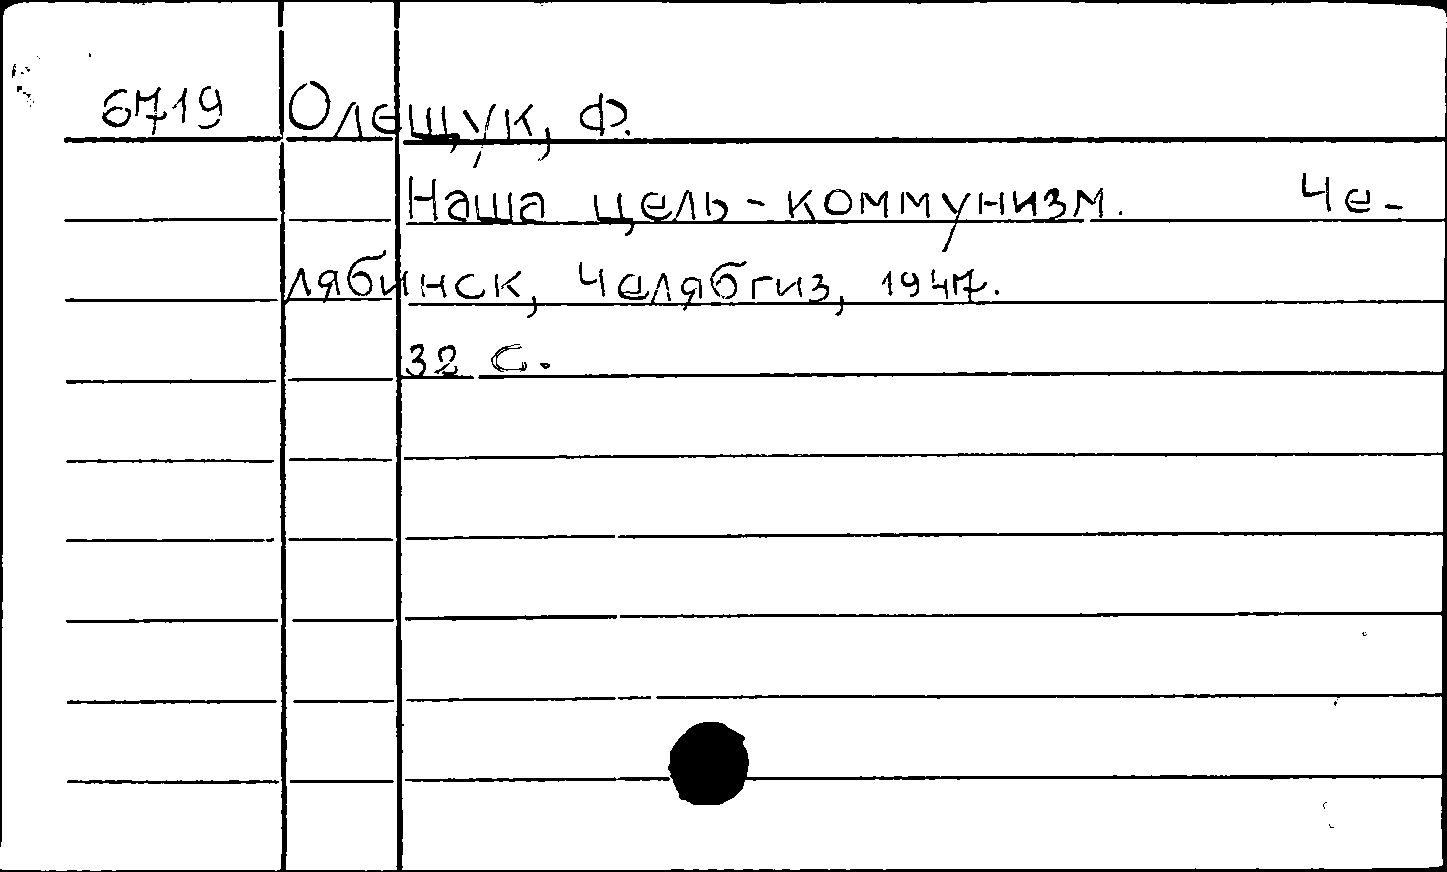 6719 Олещук, Ф.
Наша цель - коммунизм. Че-
лябинск, Челябгиз, 1947.
32 с.